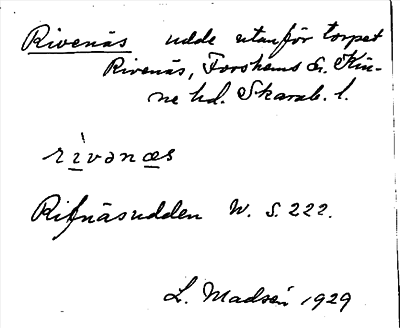 Rivenäs udde utanför torpet
Rivenäs, Forshems s. Kin-
ne hd. Skarab. l.
rìvənæs
Rifnäsudden W. S. 222.
L. Madsén 1929